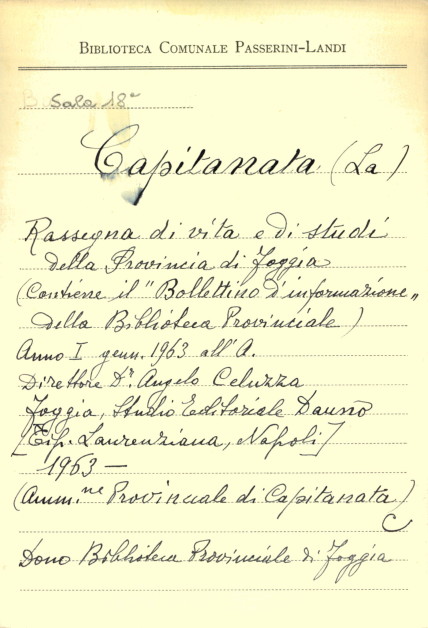 BIBLIOTECA COMUNALE PASSERINI-LANDI
Sala 18ª
Capitanata (La)
Rassegna di vita e di studi
della Provincia di Foggia
(Contiene il "Bollettino d'informazione„
della Biblioteca Provinciale)
Anno I genn. 1963 all'A.
Direttore Dr. Angelo Celuzza
Foggia, Studio Editoriale Dauno
[Tip. Laurenziana, Napoli]
1963 —
(Amm.ne Provinciale di Capitanata)
C
Dono Biblioteca Provinciale di Foggia